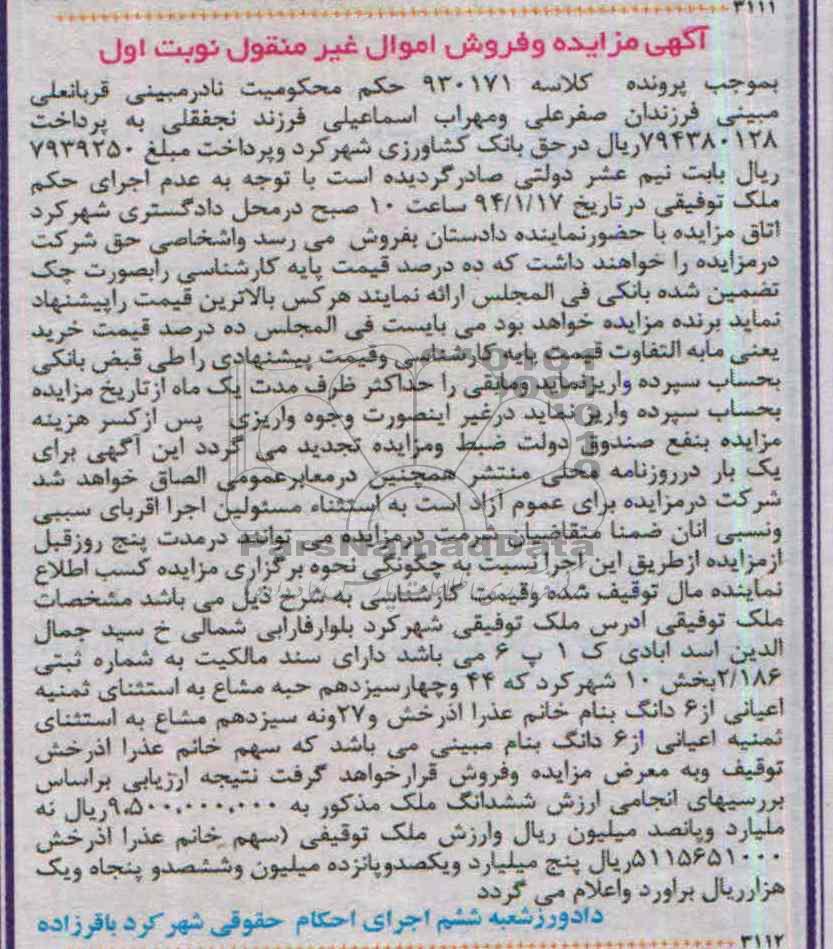 ۳۱۱۱
آگهی مزایده وفروش اموال غیر منقول نوبت اول
بموجب پرونده کلاسه ۹۳۰۱۷۱ حکم محکومیت نادرمبینی قربانعلی
مبینی فرزندان صفرعلی ومهراب اسماعیلی فرزند نجفقلی به پرداخت
۷۹۴۳۸۰۱۲۸ریال درحق بانک کشاورزی شهرکرد وپرداخت مبلغ ۷۹۳۹۲۵۰
ریال بابت نیم عشر دولتی صادرگردیده است با توجه به عدم اجرای حکم
ملک توفیقی درتاریخ ۹۴/۱/۱۷ ساعت ۱۰ صبح درمحل دادگستری شهرکرد
اتاق مزایده با حضورنماینده دادستان بفروش می رسد واشخاصی حق شرکت
درمزایده را خواهند داشت که ده درصد قیمت پایه کارشناسی رابصورت چک
تضمین شده بانکی فی المجلس ارائه نمایند هرکس بالاترین قیمت راپیشنهاد
نماید برنده مزایده خواهد بود می بایست فی المجلس ده درصد قیمت خرید
یعنی مابه التفاوت قیمت پایه کارشناسی وقیمت پیشنهادی را طی قبض بانکی
بحساب سپرده واریزنماید ومابقی را حداکثر ظرف مدت یک ماه ازتاریخ مزایده
بحساب سپرده واریز نماید درغیر اینصورت وجوه واریزی پس ازکسر هزینه
مزایده بنفع صندوق دولت ضبط ومزایده تجدید می گردد این آگهی برای
یک بار درروزنامه محلی منتشر همچنین درمعابرعمومی الصاق خواهد شد
شرکت درمزایده برای عموم آزاد است به استثناء مسئولین اجرا اقربای سببی
ونسبی انان ضمنا متقاضیان شرمت درمزایده می توانند درمدت پنج روزقبل
ازمزایده ازطریق این اجرا نسبت به چگونگی نحوه برگزاری مزایده کسب اطلاع
نماینده مال توقیف شده وقیمت کارشناسی به شرح ذیل می باشد مشخصات
ملک توفیقی ادرس ملک توفیقی شهرکرد بلوارفارابی شمالی خ سید جمال
الدین اسد ابادی ک ۱ پ ۶ می باشد دارای سند مالکیت به شماره ثبتی
۲/۱۸۶بخش ۱۰ شهرکرد که ۴۴ وچهارسیزدهم حبه مشاع به استثنای ثمنیه
اعیانی از۶ دانگ بنام خانم عذرا اذرخش و۲۷ونه سیزدهم مشاع به استثنای
ثمنیه اعیانی از۶ دانگ بنام مبینی می باشد که سهم خانم عذرا اذرخش
توقیف وبه معرض مزایده وفروش قرارخواهد گرفت نتیجه ارزیابی براساس
بررسیهای انجامی ارزش ششدانگ ملک مذکور به ۹،۵۰۰،۰۰۰،۰۰۰ریال نه
ملیارد وپانصد میلیون ریال وارزش ملک توقیفی (سهم خانم عذرا اذرخش
۵۱۱۵۶۵۱۰۰۰ریال پنج میلیارد ویکصدوپانزده میلیون وششصدو پنجاه ویک
هزارریال براورد واعلام می گردد
دادورزشعبه ششم اجرای احکام حقوقی شهرکرد باقرزاده
۳۱۱۲
ParsNamadData